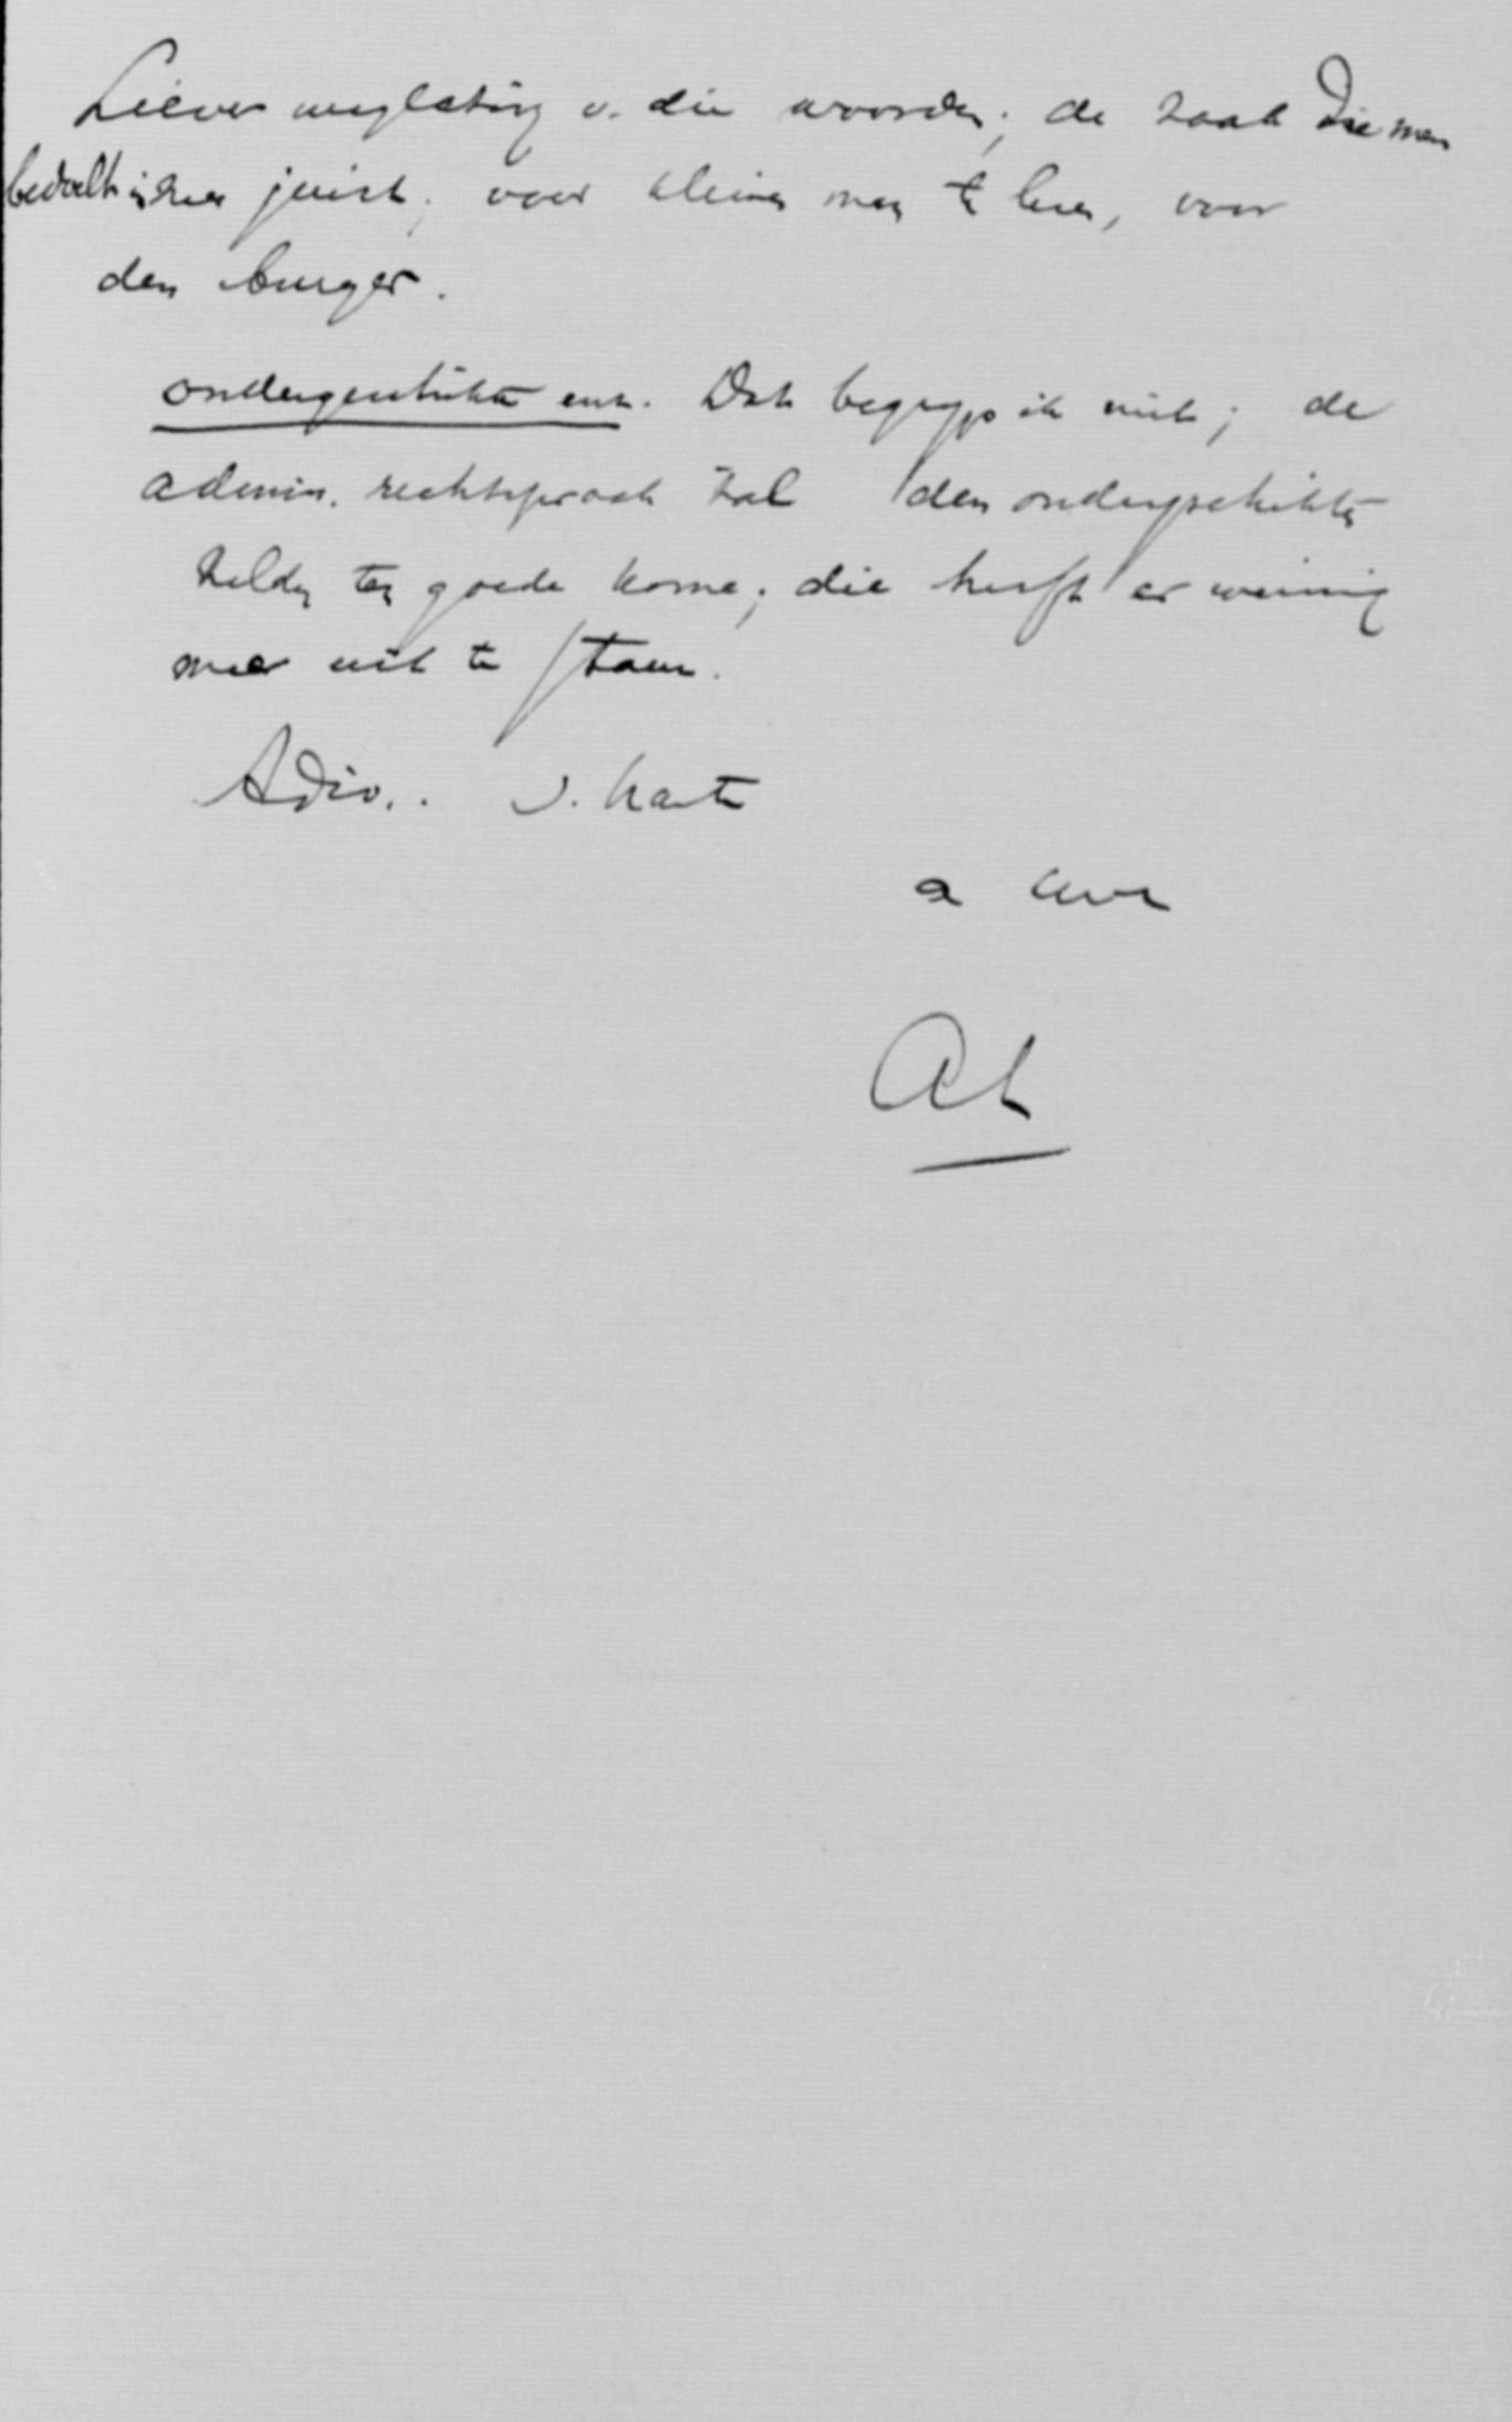 Liever weglating v. die woorden; de zaak die men
bedoelt is hier juist; voor kleine man te lezen, voor
den burger.
ondergeschikte enz. Dat begrijp ik niet; de
admin. rechtspraak zal den ondergeschikte
zelden ten goede komen; die heeft er weinig
mee uit te staan.
Adio.. v. harte
a